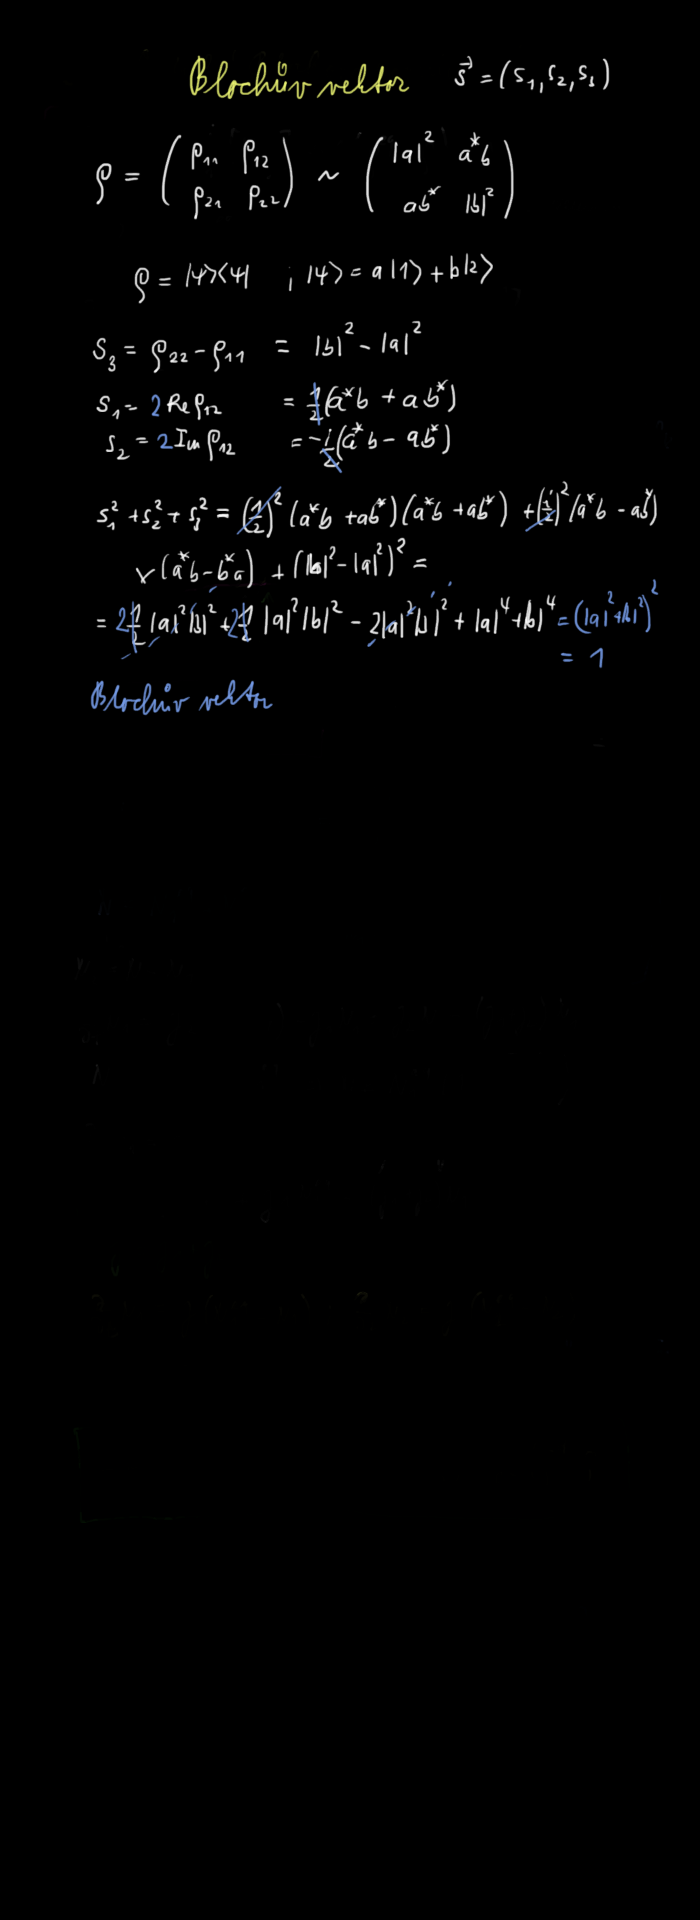 Blochův vektor s⃗ = (s₁, s₂, s₃)
ρ = (ρ₁₁ ρ₁₂ ρ₂₁ ρ₂₂) ~ (|a|² a*b ab* |b|²)
ρ = |ψ><ψ| ; |ψ> = a|1> + b|2>
S₃ = ρ₂₂ - ρ₁₁ = |b|² - |a|²
S₁ = 2 Re ρ₁₂ = 1/2 (a*b + ab*)
S₂ = 2 Im ρ₁₂ = -i/2 (a*b - ab*)
s₁² + s₂² + s₃² = (1/2)² (a*b + ab*)(a*b + ab*) + (i/2)² (a*b - ab*)
× (a*b - b*a) + (|b|² - |a|²)² =
= 2 1/2 |a|²|b|² + 2 1/2 |a|²|b|² - 2|a|²|b|² + |a|⁴ + |b|⁴ = (|a|² + |b|²)²
= 1
Blochův vektor